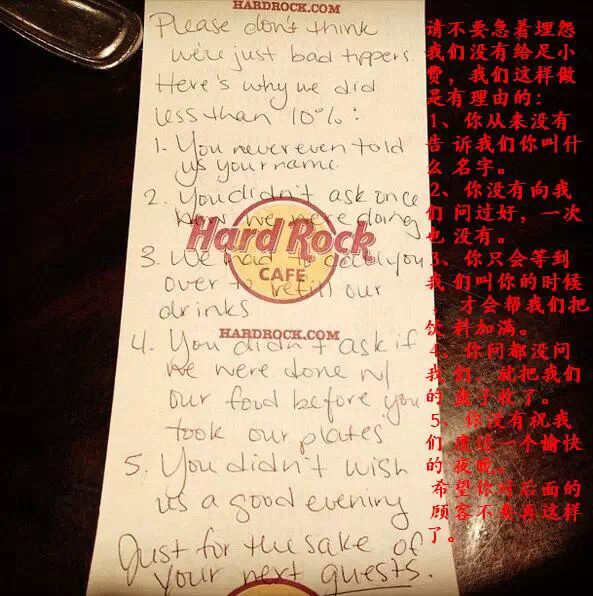 HARDROCK.COM
Please don't think
we're just bad tippers.
Here's why we did
less than 10%:
1. You never even told
us your name
2. You didn't ask once
how we were doing
3. We had to call you
over to refill our
drinks
Hard Rock
CAFE
HARDROCK.COM
4. You didn't ask if
we were done w/
our food before you
took our plates
5. You didn't wish
us a good evening
Just for the sake of
your next guests.
请不要急着埋怨
我们没有给足小
费，我们这样做
是有理由的：
1、你从来没有
告诉我们你叫什
么名字。
2、你没有向我
们问过好，一次
也没有。
3、你只会等到
我们叫你的时候
，才会帮我们把
饮料加满。
4、你问都没问
我们，就把我们
的盘子收了。
5、你没有祝我
们度过一个愉快
的夜晚。
希望你对后面的
顾客不要再这样
了。